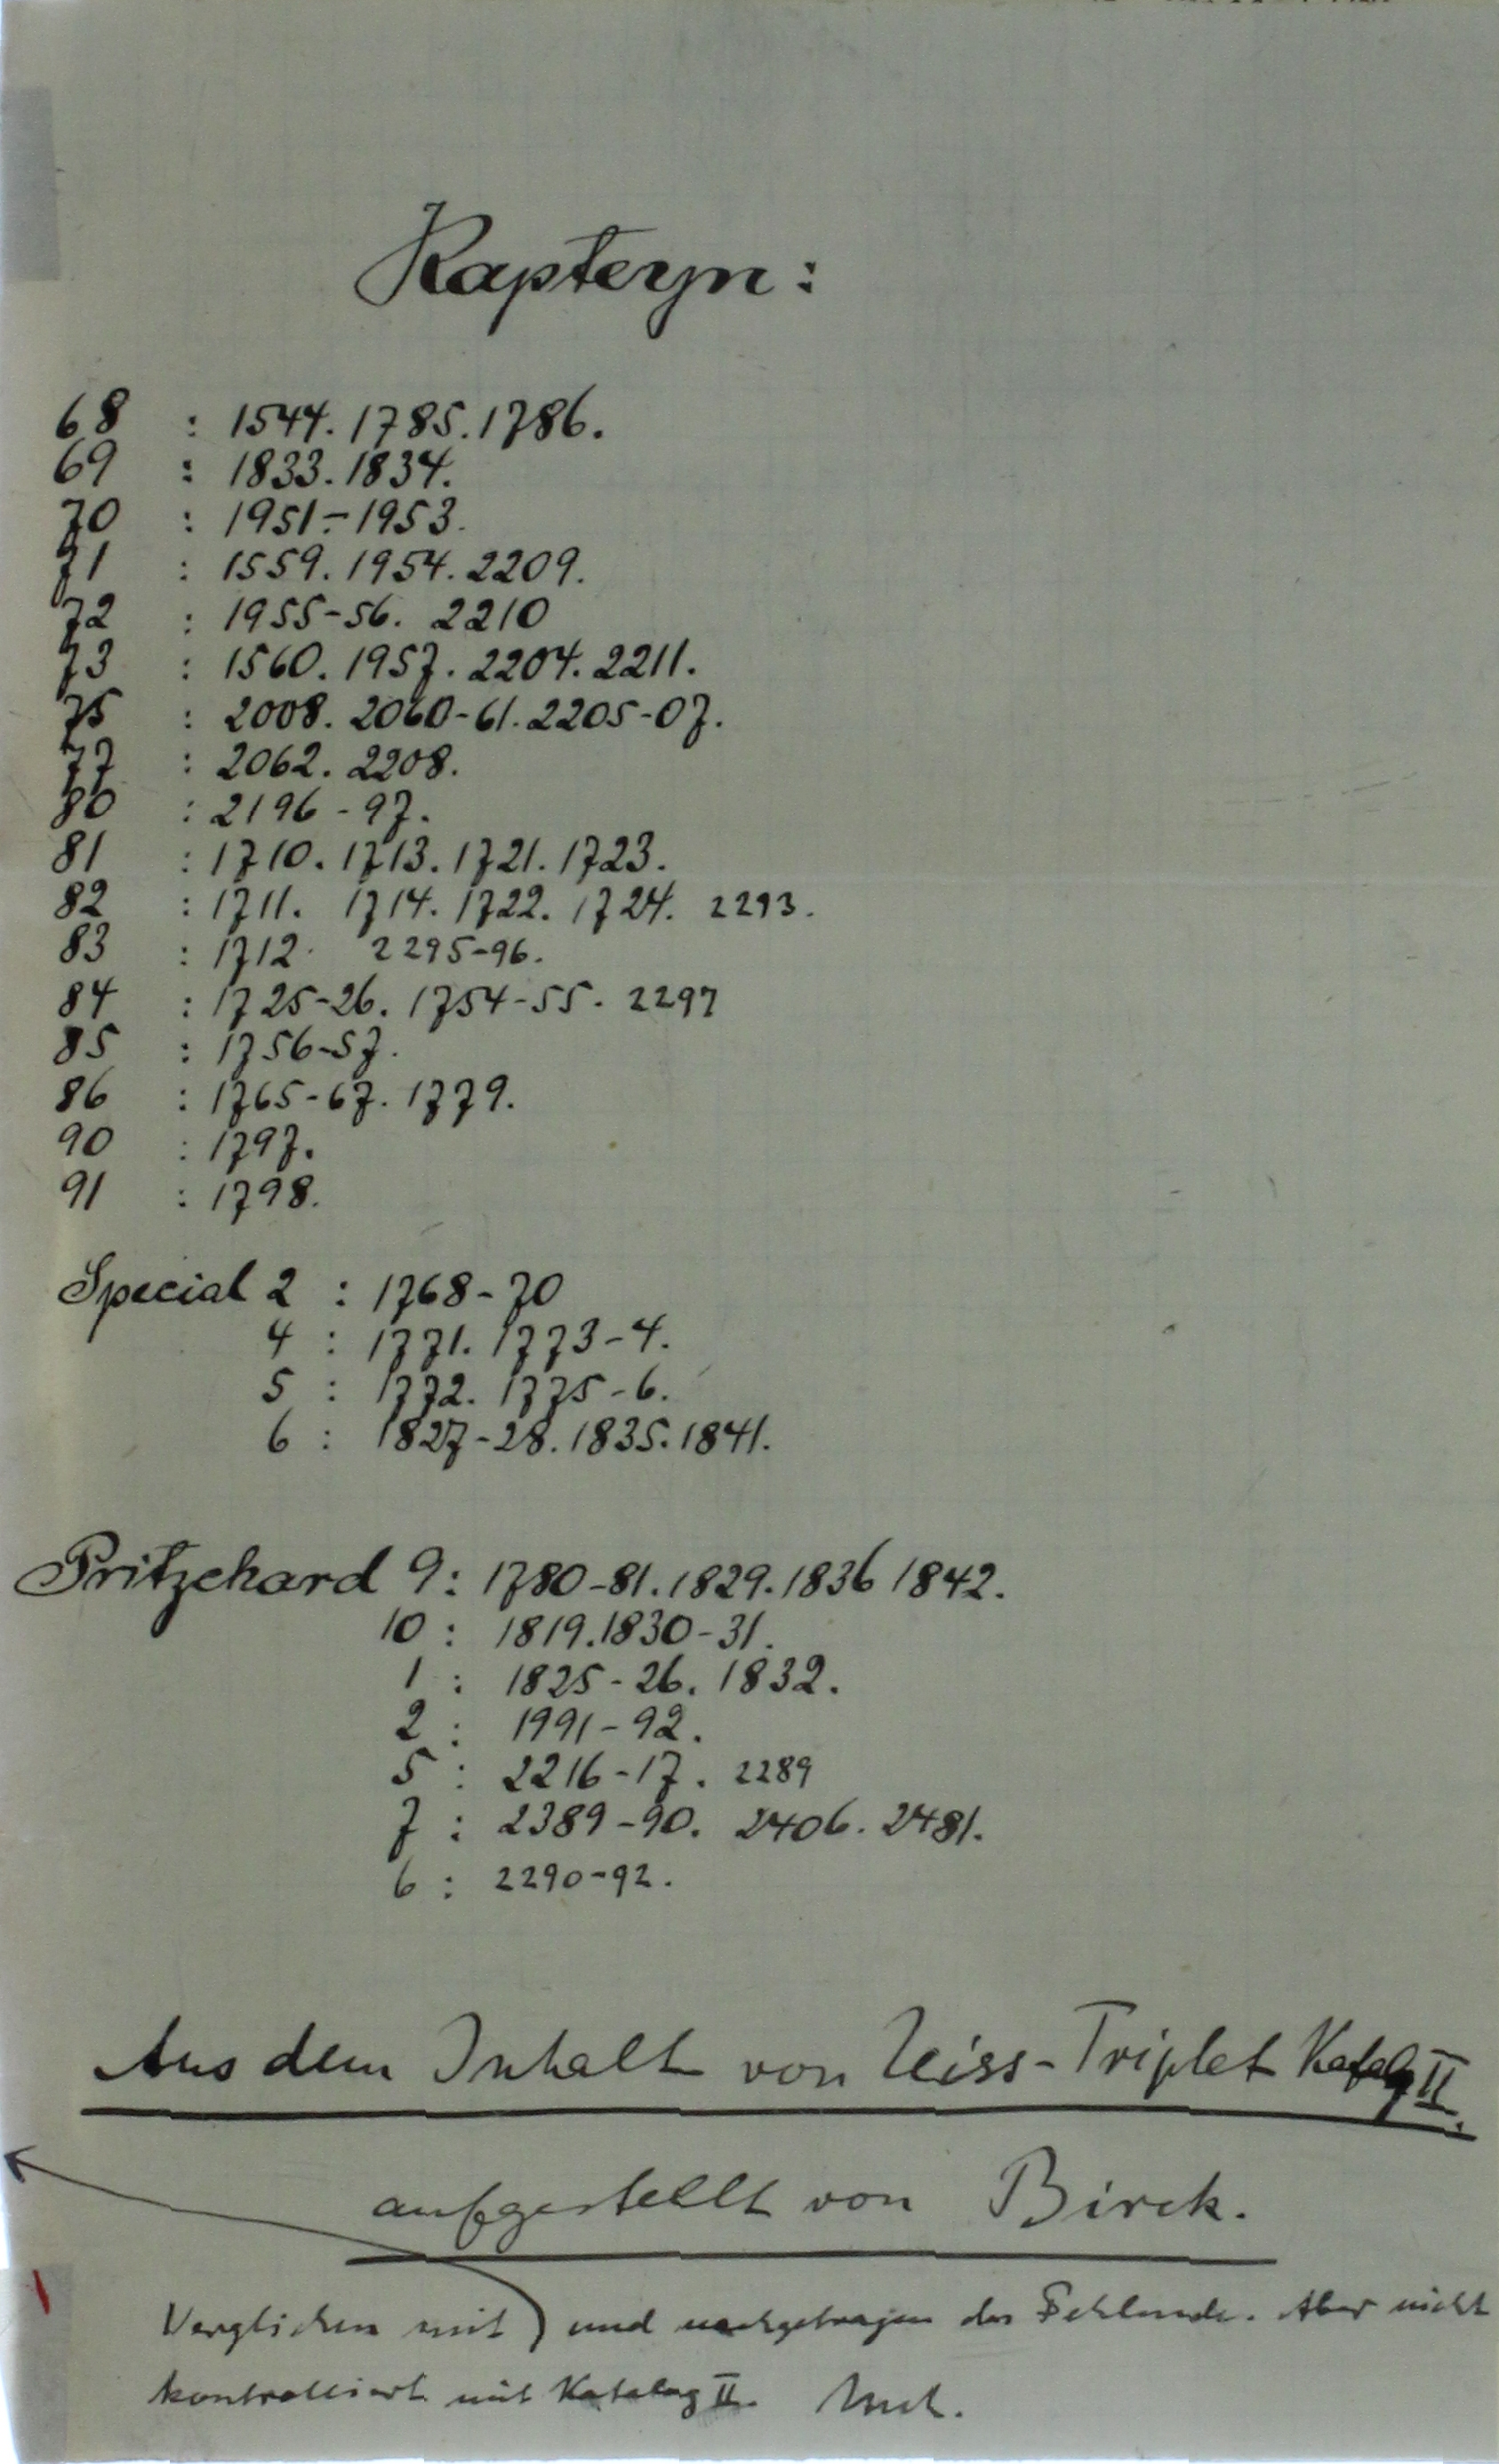 Kapteyn:
68 : 1544. 1785. 1786.
69 : 1833. 1834.
70 : 1951-1953.
71 : 1559. 1954. 2209.
72 : 1955-56. 2210
73 : 1560. 1957. 2204. 2211.
75 : 2008. 2060-61. 2205-07.
77 : 2062. 2208.
80 : 2196-97.
81 : 1710. 1713. 1721. 1723.
82 : 1711. 1714. 1722. 1724. 2293.
83 : 1712. 2295-96.
84 : 1725-26. 1754-55. 2297
85 : 1756-57.
86 : 1765-67. 1779.
90 : 1797.
91 : 1798.
Special 2 : 1768-70
4 : 1771. 1773-4.
5 : 1772. 1775-6.
6 : 1827-28. 1835. 1841.
Pritzchard 9: 1780-81. 1829. 1836 1842.
10 : 1819. 1830-31.
1 : 1825-26. 1832.
2 : 1991-92.
5 : 2216-17. 2289
7 : 2389-90. 2406. 2481.
6 : 2290-92.
Aus dem Inhalt von Zeiss-Triplet Katalog II.
aufgestellt von Birck.
Verglichen mit ) und nachgetragen das Fehlende. Aber nicht
kontrolliert mit Katalog II.